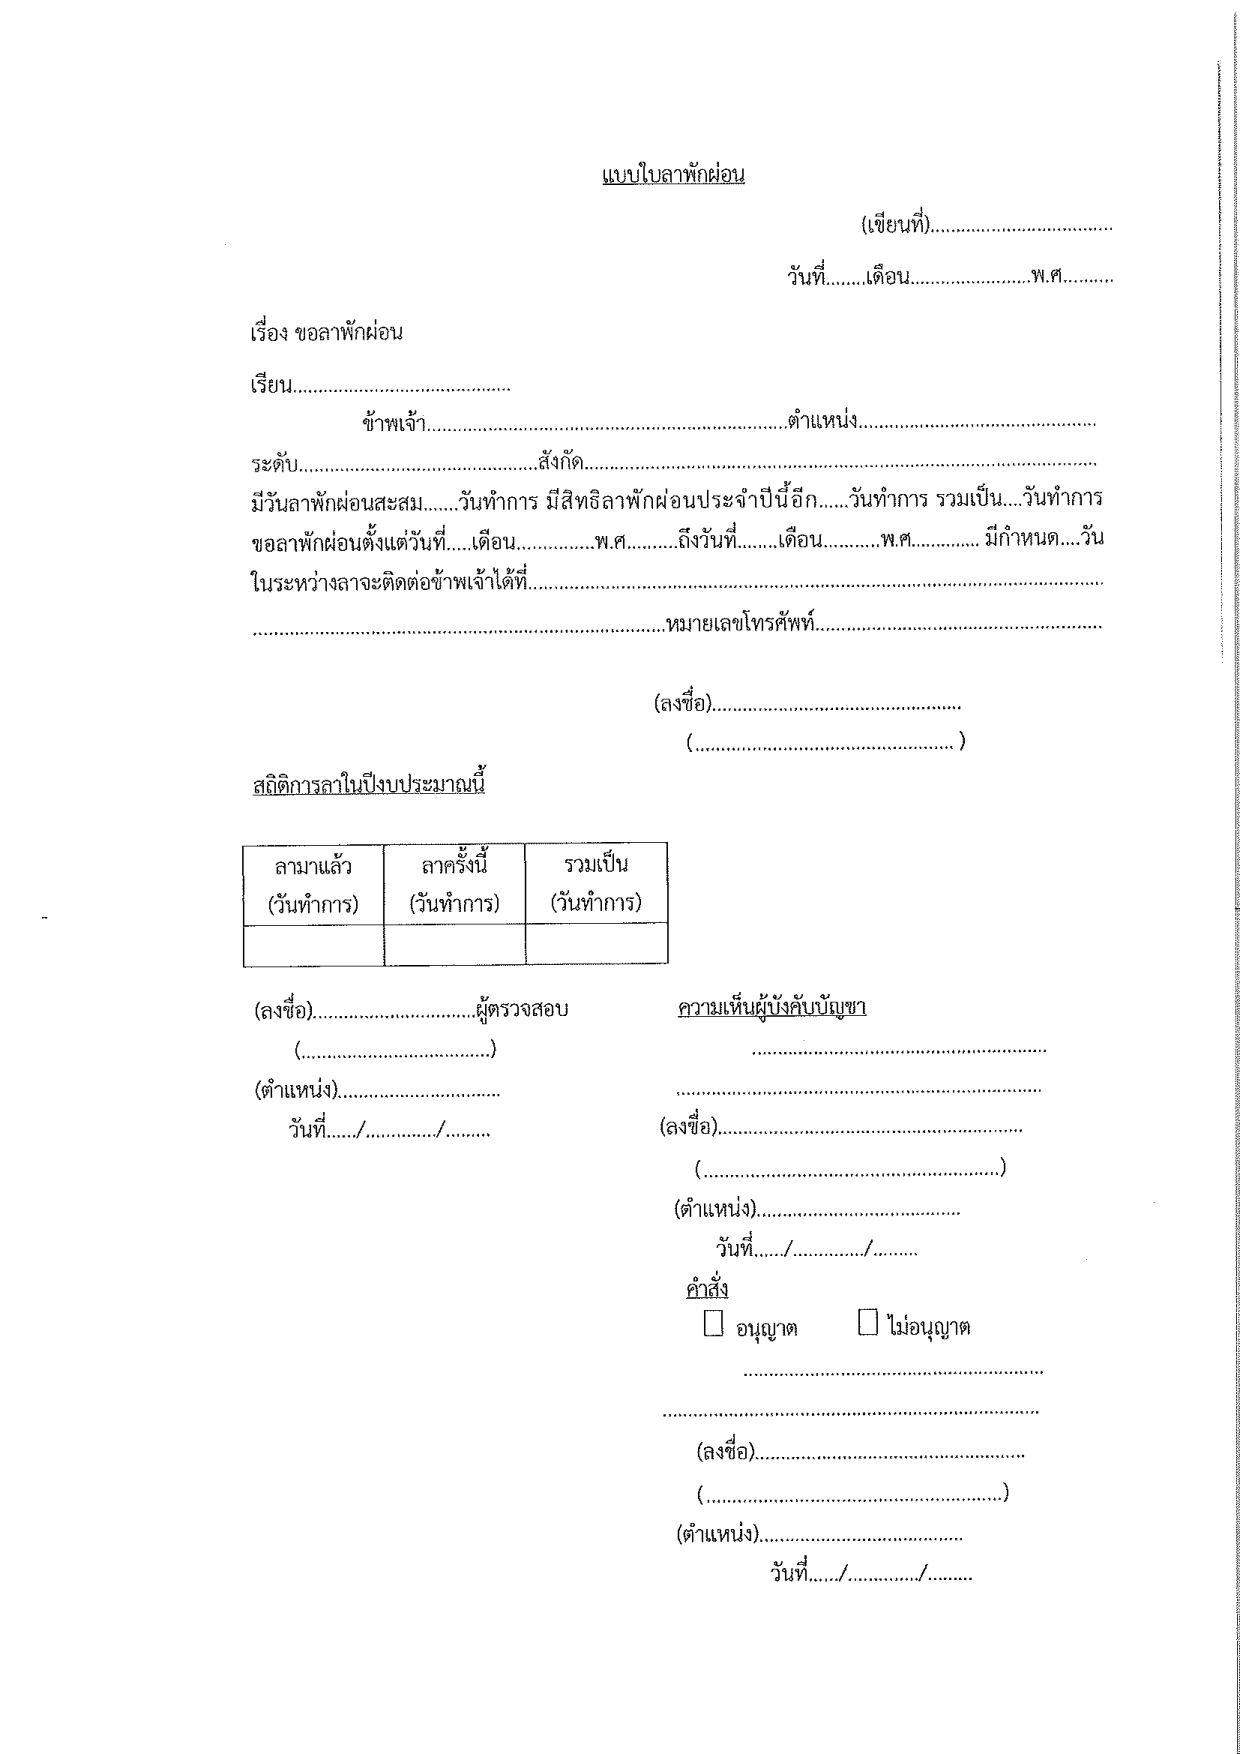 แบบใบลาพักผ่อน
(เขียนที่)....................................
วันที่........เดือน........................พ.ศ..........
เรื่อง ขอลาพักผ่อน
เรียน...........................................
ข้าพเจ้า.......................................................................ตำแหน่ง...............................................
ระดับ...............................................สังกัด....................................................................................................
มีวันลาพักผ่อนสะสม.......วันทำการ มีสิทธิลาพักผ่อนประจำปีนี้อีก......วันทำการ รวมเป็น....วันทำการ
ขอลาพักผ่อนตั้งแต่วันที่.....เดือน...............พ.ศ..........ถึงวันที่........เดือน...........พ.ศ............. มีกำหนด....วัน
ในระหว่างลาจะติดต่อข้าพเจ้าได้ที่.................................................................................................................
.................................................................................หมายเลขโทรศัพท์........................................................
(ลงชื่อ).................................................
(.................................................. )
สถิติการลาในปีงบประมาณนี้
ลามาแล้ว ลาครั้งนี้ รวมเป็น
(วันทำการ) (วันทำการ) (วันทำการ)
(ลงชื่อ)................................ผู้ตรวจสอบ
(.....................................)
(ตำแหน่ง)................................
วันที่....../............../.........
ความเห็นผู้บังคับบัญชา
..........................................................
........................................................................
(ลงชื่อ)............................................................
(..........................................................)
(ตำแหน่ง)........................................
วันที่....../............../.........
คำสั่ง
☐ อนุญาต ☐ ไม่อนุญาต
...........................................................
..........................................................................
(ลงชื่อ).....................................................
(..........................................................)
(ตำแหน่ง)........................................
วันที่....../............../.........